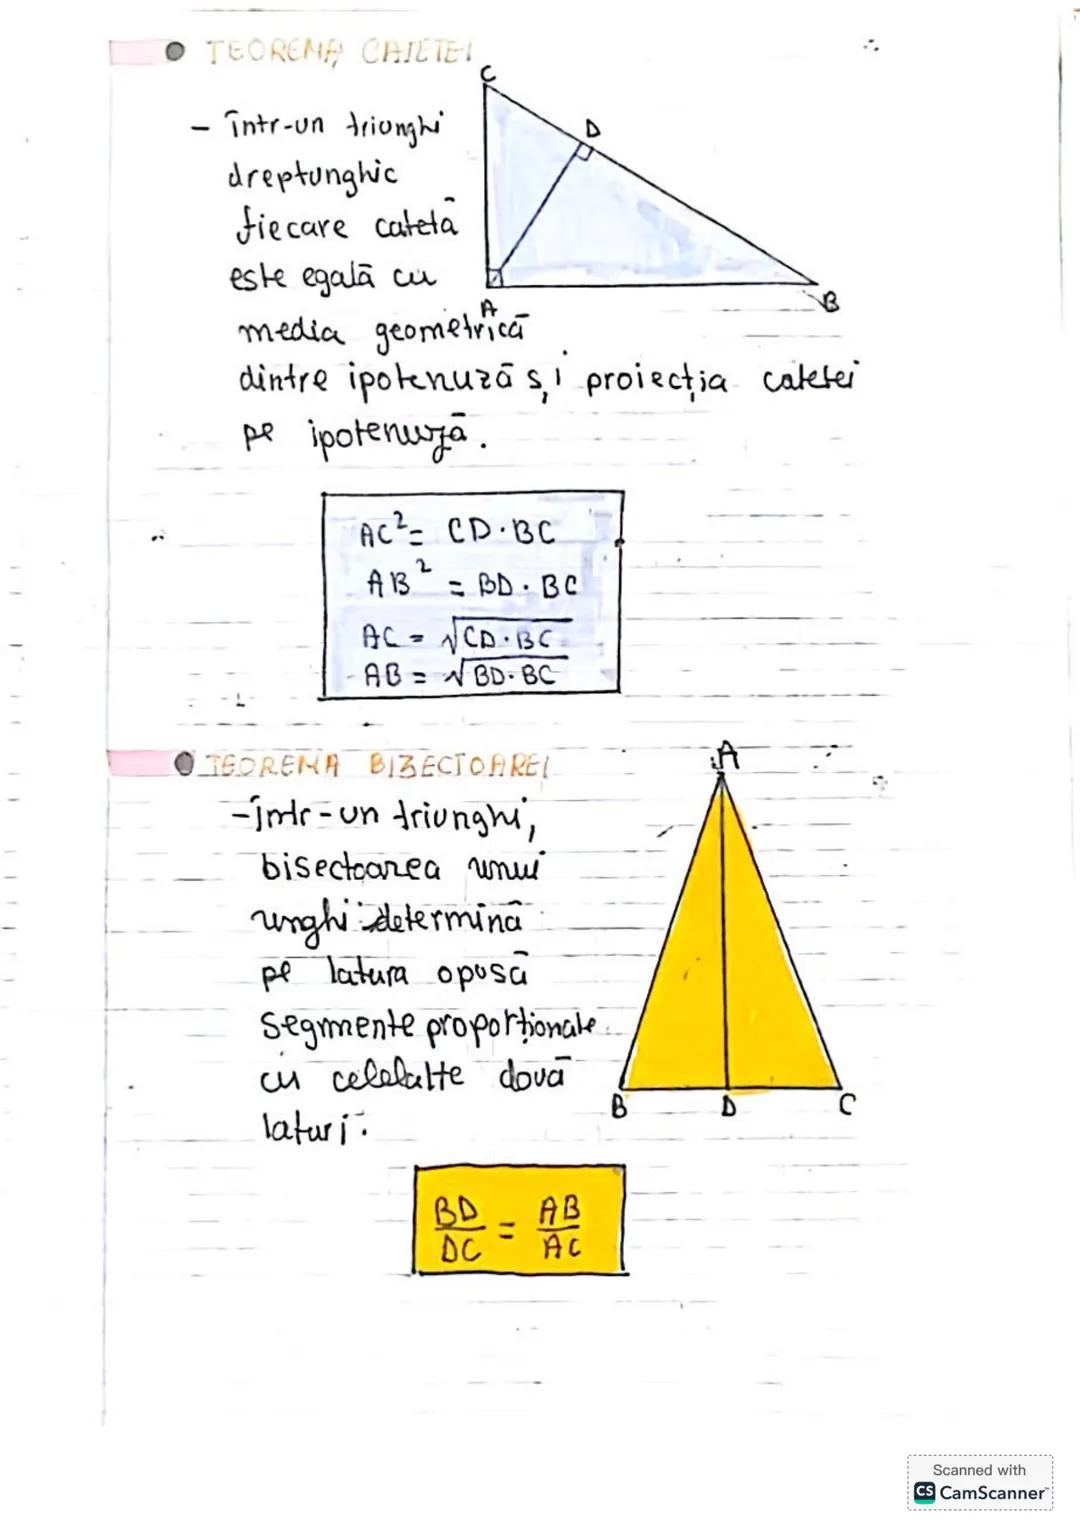 TEOREMA CATETEI
C
D
- într-un triunghi
dreptunghic
fiecare catetă
este egală cu
A
B
media geometrică
dintre ipotenuză și proiecția catetei
pe ipotenuză.
AC² = CD · BC
AB² = BD · BC
AC = √CD · BC
AB = √BD · BC
TEOREMA BISECTOAREI
A
- într-un triunghi,
bisectoarea unui
unghi determină
pe latura opusă
segmente proporționale
cu celelalte două
B D C
laturi.
BD/DC = AB/AC
Scanned with
CS CamScanner